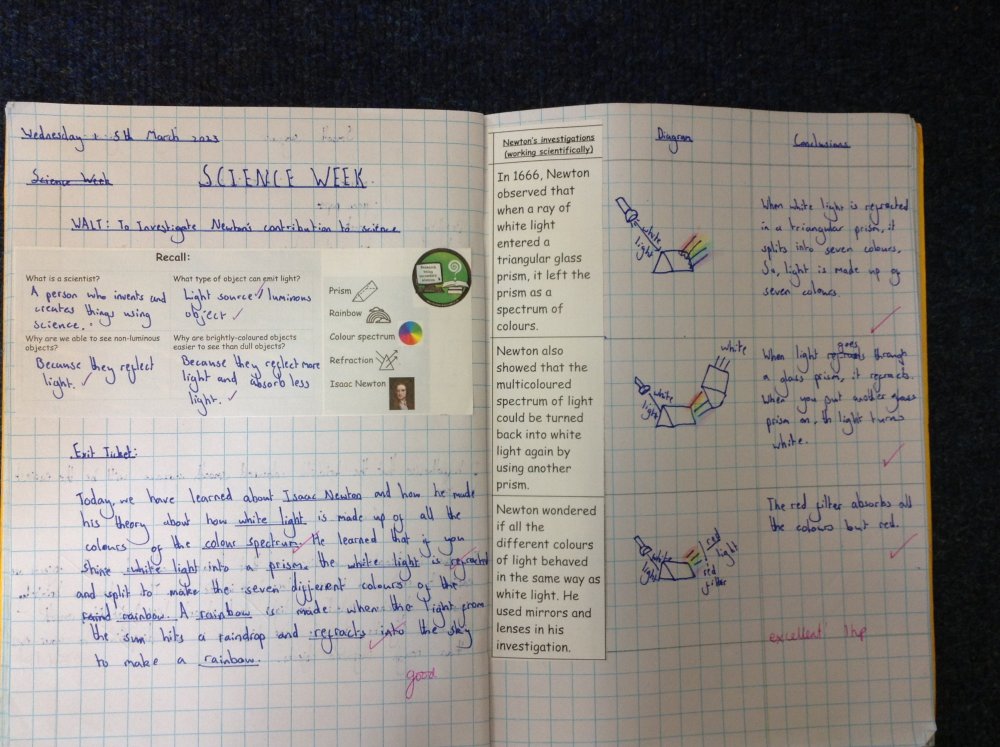 Wednesday 15th March 2023
Science Week
SCIENCE WEEK
WALT: To Investigate Newton's contribution to science
Recall:
What is a scientist?
A person who invents and
creates things using
science.
What type of object can emit light?
Light source / luminous
object
Why are we able to see non-luminous
objects?
Because they reflect
light.
Why are brightly-coloured objects
easier to see than dull objects?
Because they reflect more
light and absorb less
light.
Prism
Rainbow
Colour spectrum
Refraction
Isaac Newton
Exit Ticket:
Today, we have learned about Isaac Newton and how he made
his theory about how white light is made up of all the
colours of the colour spectrum. He learned that if you
shine white light into a prism the white light is refracted
and split to make the seven different colours of the
raind rainbow. A rainbow is made when the light from
the sun hits a raindrop and refracts into the sky
to make a rainbow.
good
Newton's investigations
(working scientifically)
In 1666, Newton
observed that
when a ray of
white light
entered a
triangular glass
prism, it left the
prism as a
spectrum of
colours.
Newton also
showed that the
multicoloured
spectrum of light
could be turned
back into white
light again by
using another
prism.
Newton wondered
if all the
different colours
of light behaved
in the same way as
white light. He
used mirrors and
lenses in his
investigation.
Diagram
white
light
white
light
white
white
light
red
light
red
filter
Conclusions
When white light is refracted
in a triangular prism, it
splits into seven colours.
So, light is made up of
seven colours.
When light goes through
a glass prism, it refracts.
When you put another glass
prism on, th light turns
white.
The red filter absorbs all
the colours but red.
excellent! 1hp